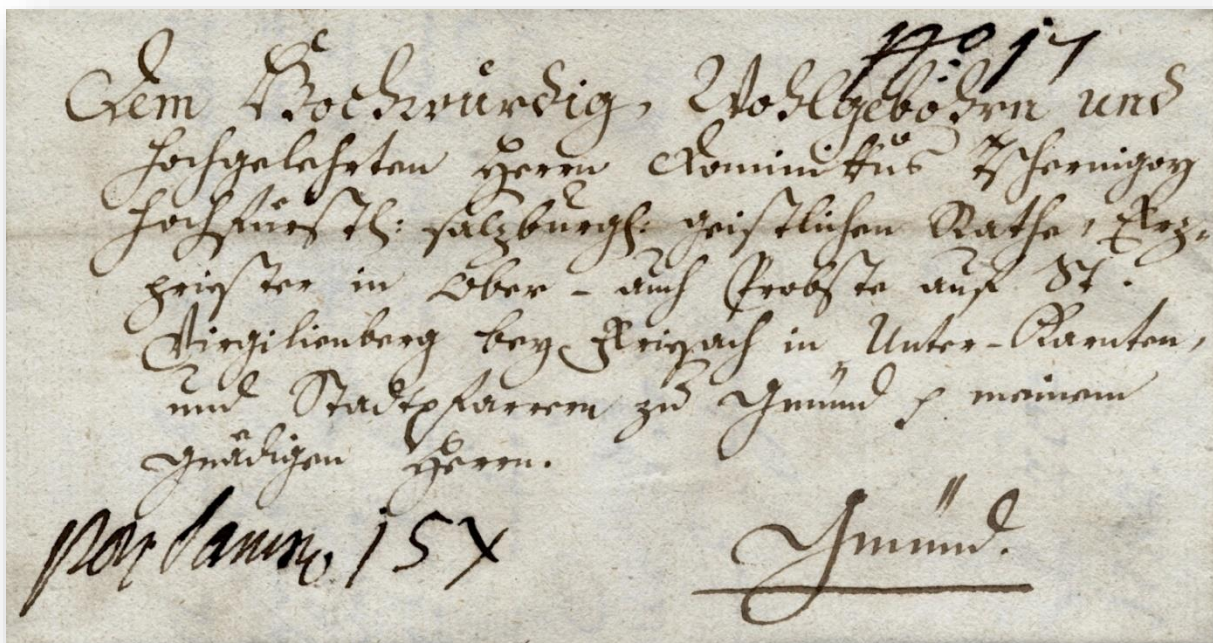 No 17
Dem Hochwürdig, Wohlgebohrn und
Hochgelehrten Herrn Dominikus Tschernigoy
Hochfürstl: salzburgl: geistlichen Rathe, Erz-
priester in Ober- auch Probste auf St.
Virgilienberg bey Friesach in Unter-Kärnten,
und Stadtpfarrern zu Gmünd meinem
gnädigen Herrn.
15 x
Gmünd.